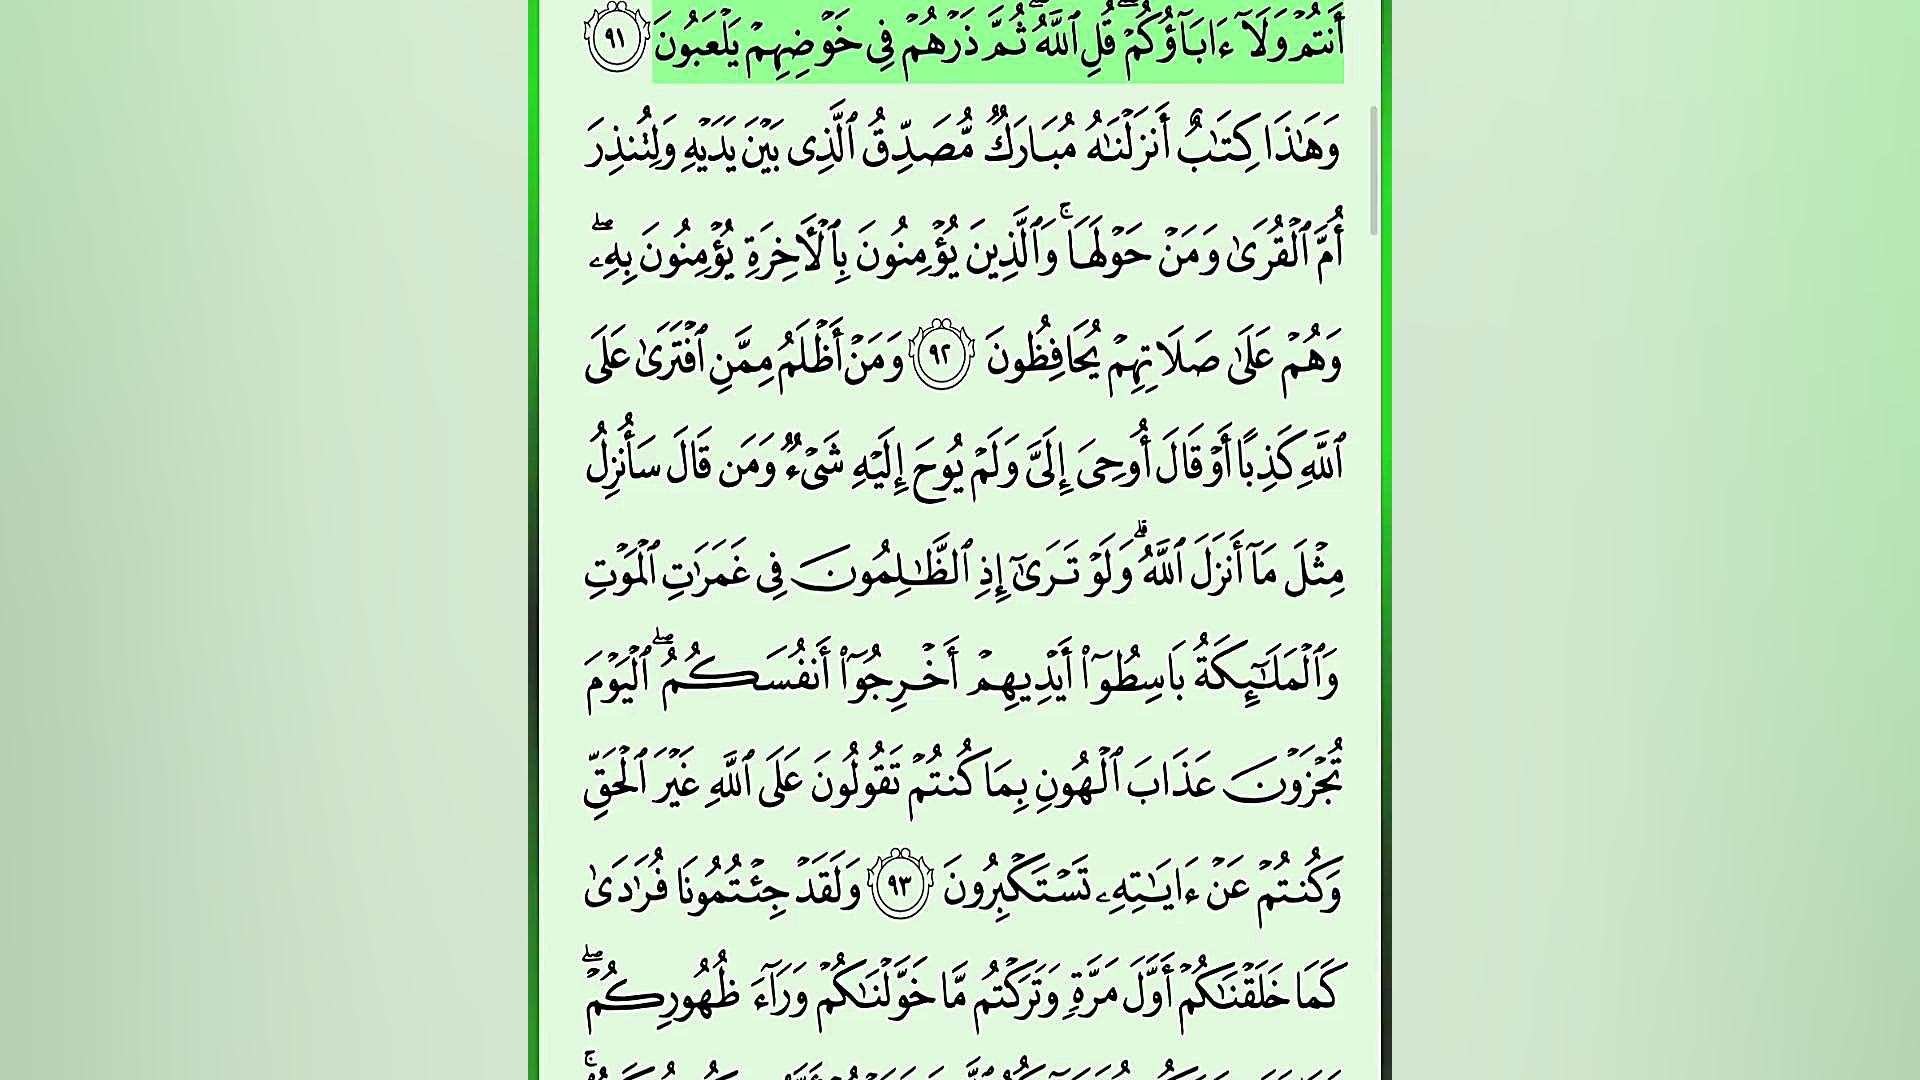 أَنتُمْ وَلَآ ءَابَآؤُكُمْ ۖ قُلِ ٱللَّهُ ۖ ثُمَّ ذَرْهُمْ فِى خَوْضِهِمْ يَلْعَبُونَ ٩١
وَهَـٰذَا كِتَـٰبٌ أَنزَلْنَـٰهُ مُبَارَكٌ مُّصَدِّقُ ٱلَّذِى بَيْنَ يَدَيْهِ وَلِتُنذِرَ
أُمَّ ٱلْقُرَىٰ وَمَنْ حَوْلَهَا ۚ وَٱلَّذِينَ يُؤْمِنُونَ بِٱلْـَٔاخِرَةِ يُؤْمِنُونَ بِهِۦ ۖ
وَهُمْ عَلَىٰ صَلَاتِهِمْ يُحَافِظُونَ ٩٢ وَمَنْ أَظْلَمُ مِمَّنِ ٱفْتَرَىٰ عَلَى
ٱللَّهِ كَذِبًا أَوْ قَالَ أُوحِىَ إِلَىَّ وَلَمْ يُوحَ إِلَيْهِ شَىْءٌ وَمَن قَالَ سَأُنزِلُ
مِثْلَ مَآ أَنزَلَ ٱللَّهُ ۗ وَلَوْ تَرَىٰٓ إِذِ ٱلظَّـٰلِمُونَ فِى غَمَرَٰتِ ٱلْمَوْتِ
وَٱلْمَلَـٰٓئِكَةُ بَاسِطُوٓا۟ أَيْدِيهِمْ أَخْرِجُوٓا۟ أَنفُسَكُمُ ۖ ٱلْيَوْمَ
تُجْزَوْنَ عَذَابَ ٱلْهُونِ بِمَا كُنتُمْ تَقُولُونَ عَلَى ٱللَّهِ غَيْرَ ٱلْحَقِّ
وَكُنتُمْ عَنْ ءَايَـٰتِهِۦ تَسْتَكْبِرُونَ ٩٣ وَلَقَدْ جِئْتُمُونَا فُرَٰدَىٰ
كَمَا خَلَقْنَـٰكُمْ أَوَّلَ مَرَّةٍ وَتَرَكْتُم مَّا خَوَّلْنَـٰكُمْ وَرَآءَ ظُهُورِكُمْ ۖ